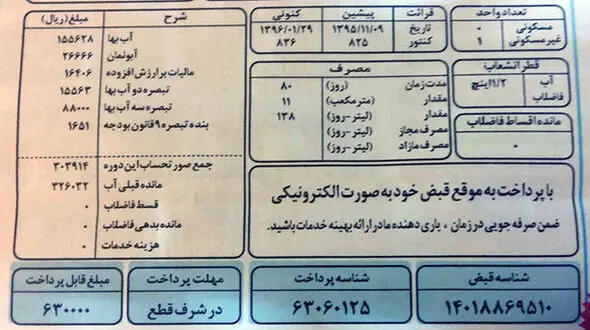 تعداد واحد
مسکونی ۰
غیرمسکونی ۱
قطر انشعاب
آب ۱/۲اینچ
فاضلاب
مانده اقساط فاضلاب
قرائت پیشین کنونی
تاریخ ۱۳۹۵/۱۱/۰۹ ۱۳۹۶/۰۱/۲۹
کنتور ۸۲۵ ۸۳۶
مصرف
مدت زمان (روز) ۸۰
مقدار (مترمکعب) ۱۱
مقدار (لیتر-روز) ۱۳۸
مصرف مجاز (لیتر-روز)
مصرف مازاد (لیتر-روز)
با پرداخت به موقع قبض خود به صورت الکترونیکی
ضمن صرفه جویی در زمان ، یاری دهنده ما در ارائه بهینه خدمات باشید.
شرح مبلغ (ریال)
آب بها ۱۵۵۶۲۸
آبونمان ۲۶۶۶۶
مالیات بر ارزش افزوده ۱۶۴۰۶
تبصره دو آب بها ۱۵۵۶۳
تبصره سه آب بها ۸۸۰۰۰
بند ه تبصره ۹ قانون بودجه ۱۶۵۱
جمع صورتحساب این دوره ۳۰۳۹۱۴
مانده قبلی آب ۳۲۶۰۳۲
قسط فاضلاب ۰
مانده بدهی فاضلاب ۰
هزینه خدمات ۰
شناسه قبض
۱۴۰۱۸۸۶۹۵۱۰
شناسه پرداخت
۶۳۰۶۰۱۲۵
مهلت پرداخت
در شرف قطع
مبلغ قابل پرداخت
۶۳۰۰۰۰